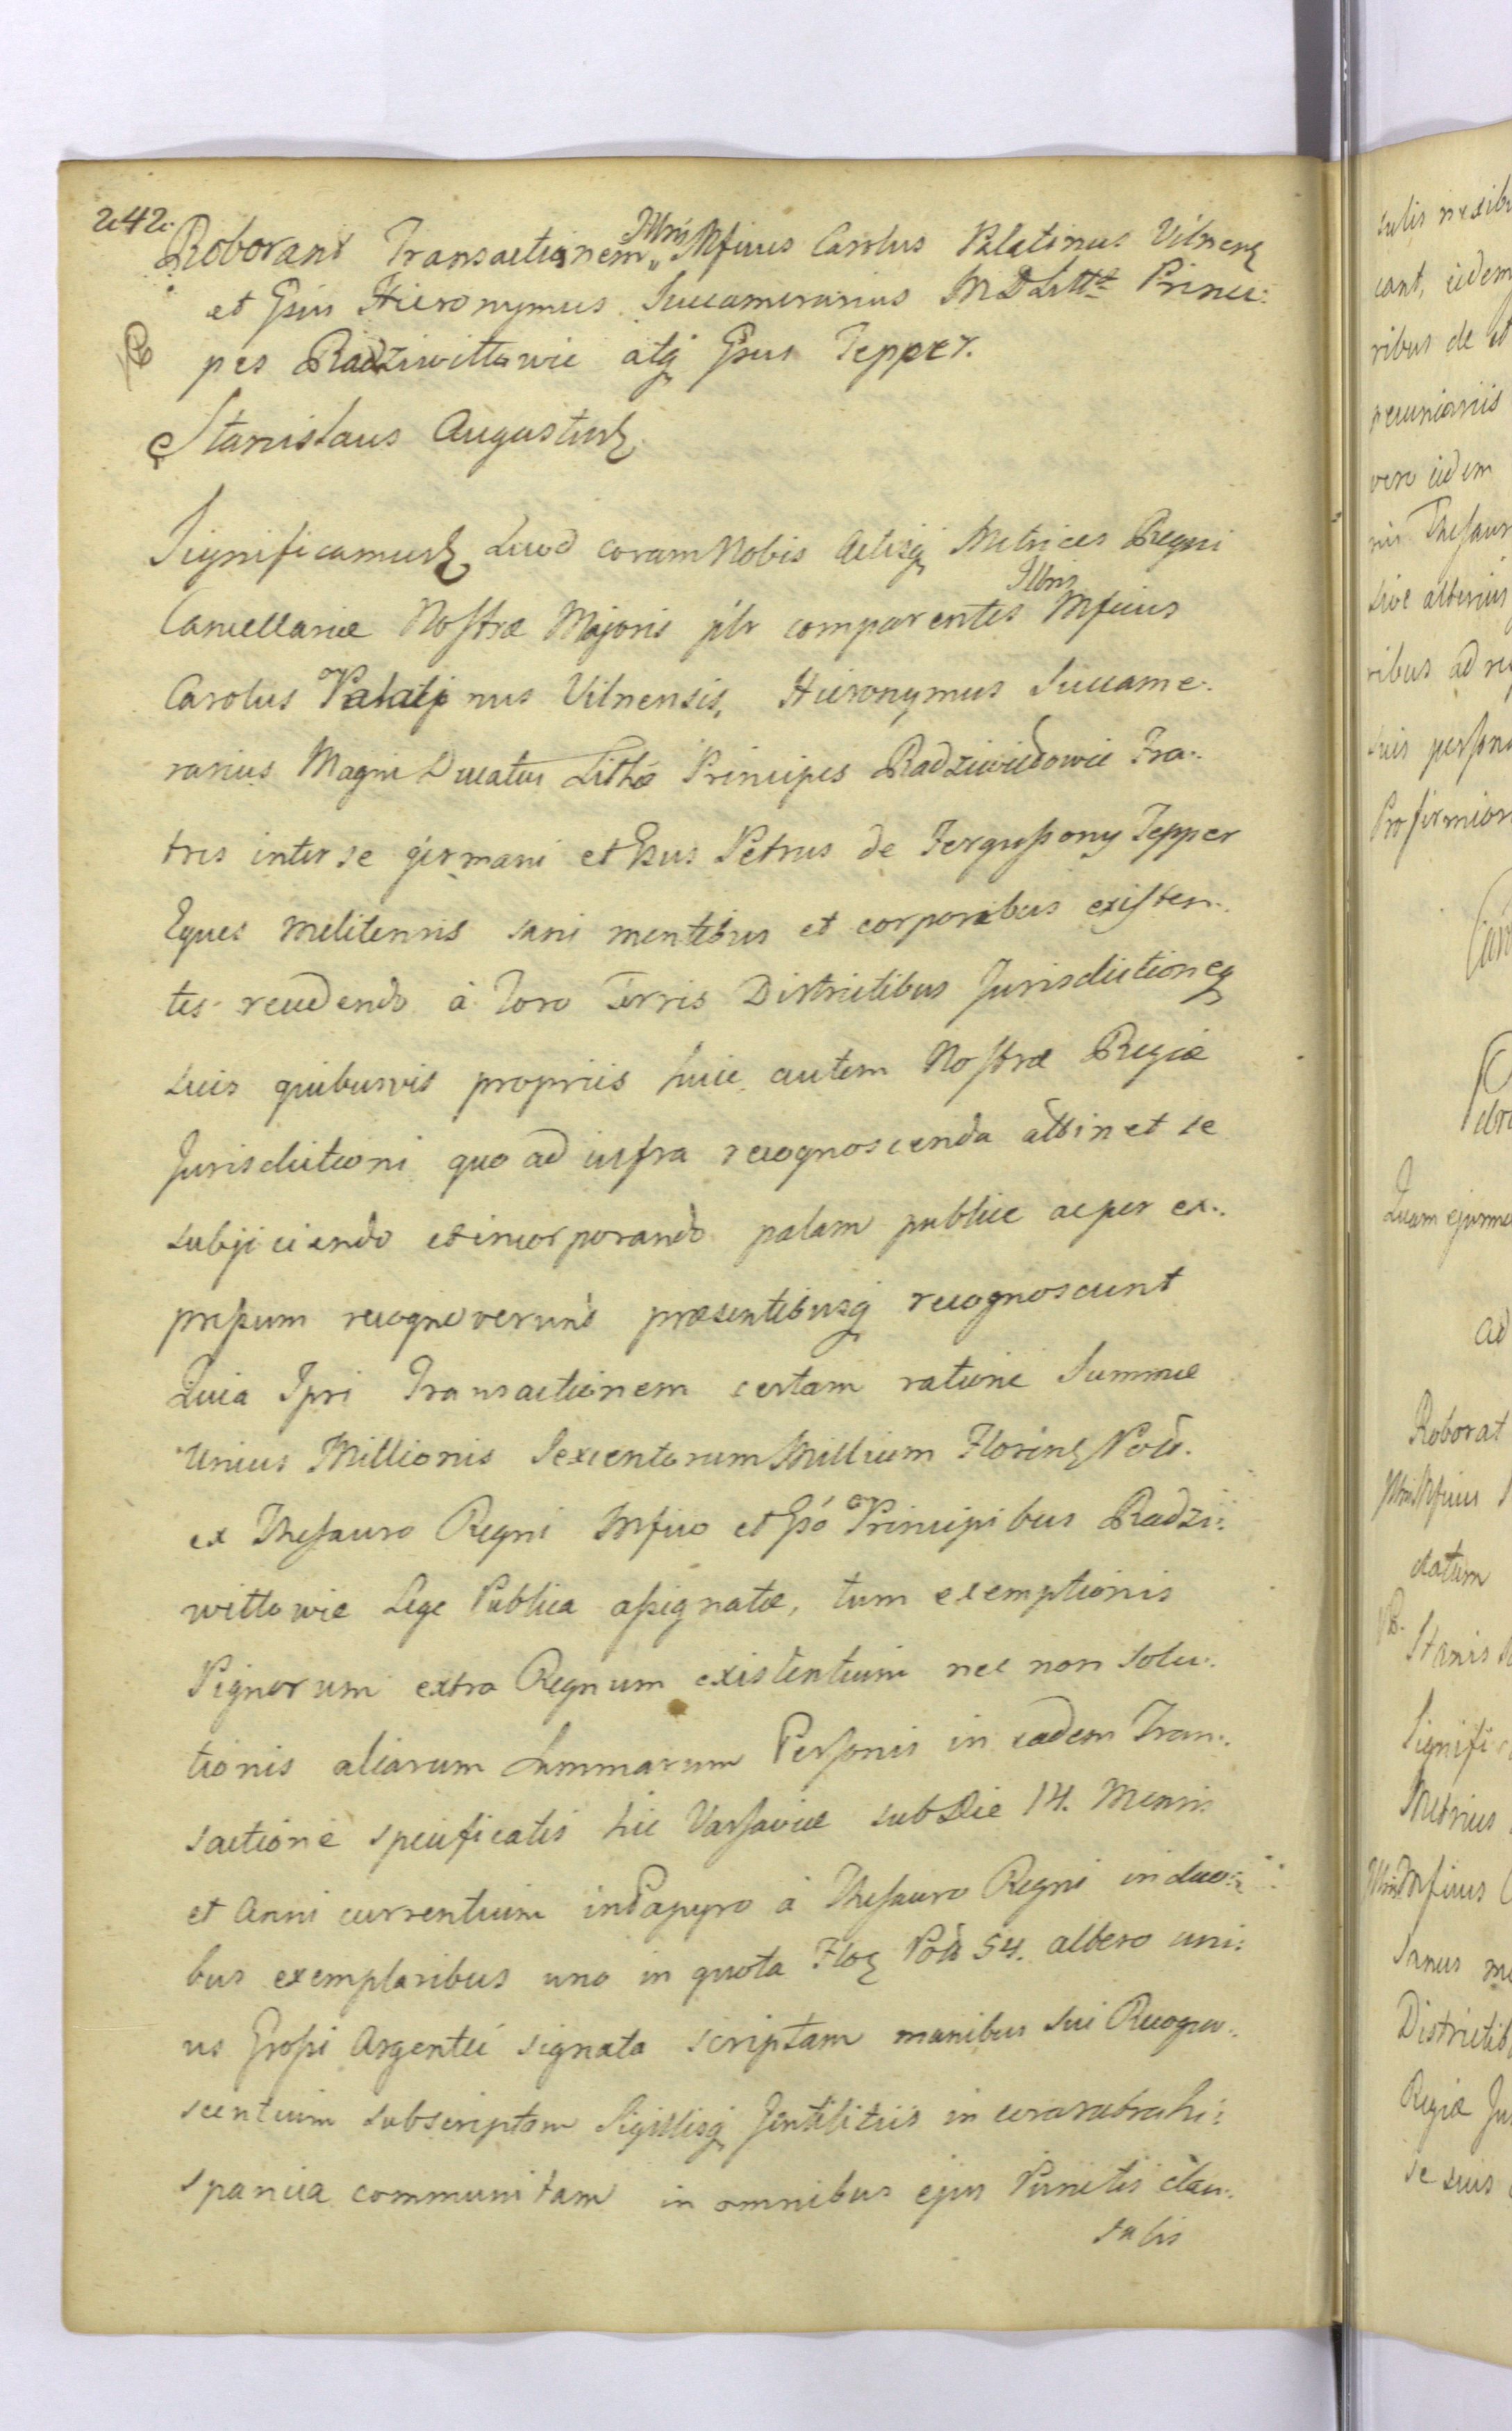 242.
Roborant Transactionem Illris Mficus Carolus Palatinus Vilnens
et Gsus Hieronymus Succamerarius M D Litt Princi:
pes Radziwiłłowie atq Gsus Tepper.
Stanislaus Augustus
Significamus Quod coram Nobis Actisq Metrices Regni
Cancellariæ Nostræ Majoris plr comparentes Illris Mficus
Carolus Palatinus Vilnensis, Hieronymus Succame:
rarius Magni Ducatus Lithæ Principes Radziwiłłowie Fra:
tres inter se germani et Gsus Petrus de Fergusony Tepper
Eques Melitensis sani mentibus et corporibus existen:
tes recedendo à Foro Terris Districtibus Jurisdictioneq
suis quibusvis propriis huic autem Nostræ Regiæ
Jurisdictioni quo ad infra recognoscenda attinet se
subjiciendo et incorporando palam publice ac per ex:
pressum recognoverunt præsentibusq recognoscunt
Quia Ipsi Transactionem certam ratione Summæ
Unius Millionis Sexcentorum Millium Floren Pol.
ex Thesauro Regni Mfico et Gso Principibus Radzi:
wiłłowie Lege Publica assignatæ, tum exemptionis
Pignorum extra Regnum existentium nec non solu:
tionis aliarum Summarum Personis in eadem Tran:
sactione specificatis hic Varsaviæ sub Die 14. Mensis
et Anni currentium in Papyro à Thesauro Regni in duo:
bus exemplaribus uno in quota Flor Pol 54. altero uni:
us Grossi Argentei signata scriptam manibus sui Recogno:
scentium subscriptam Sigillisq Gentilitiis in cera rubra hi:
spanica communitam in omnibus ejus Punctis clau:
sulis
sulis nexibu
cant, iidem
ribus de et
pecuniariis
vero iidem
nis Thesaur
sive alterius
ribus ad re
suis person
Pro firmior
Quam ejusmo
ad
Roborat
Illris Mficus
datum
Stanis
Signific
Metrices
Illris Mficus C
Sanus me
Districtib
Regiæ Ju
se suis